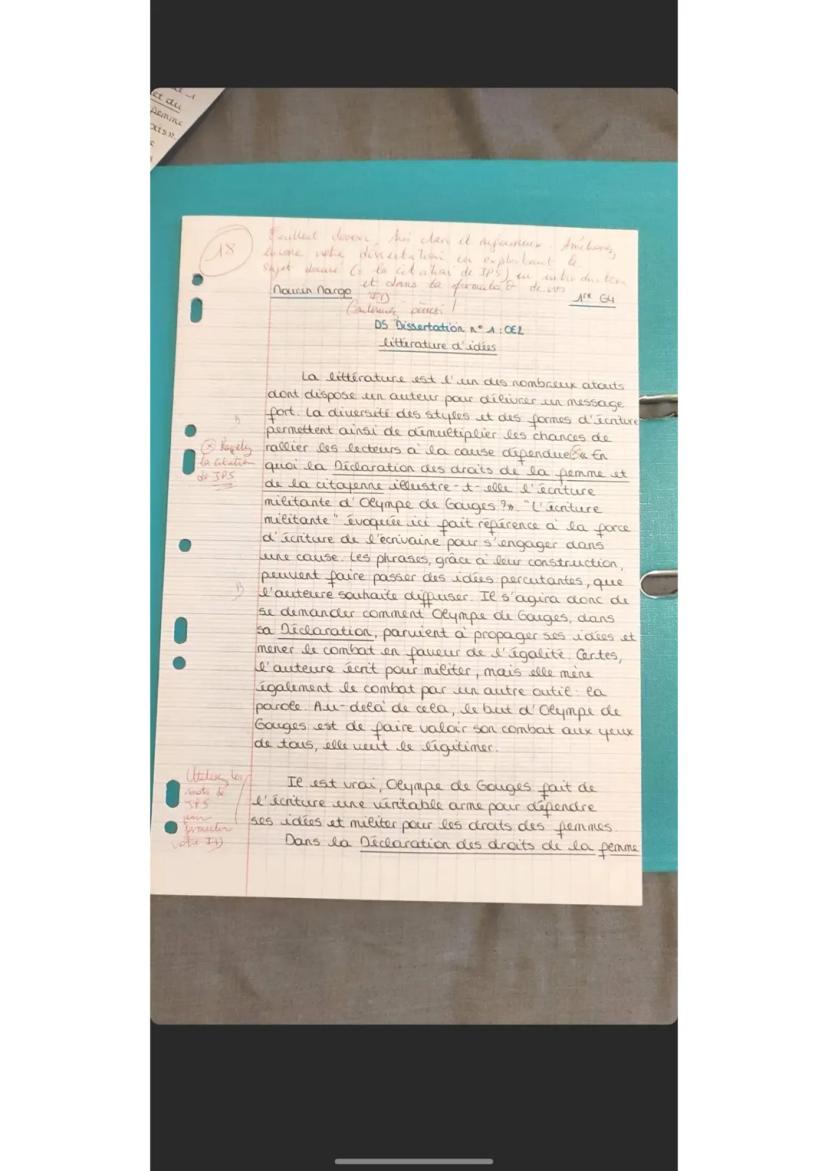 et du
femme
18
Excellent devoir, très clair et rigoureux. Améliorez
encore votre dissertation en exploitant le
sujet donné (= la citation de JPS) en introduction
et dans la formulat° de vos
Margo
1re G4
Continuez ainsi !
DS Dissertation n°1 : OE2
littérature d'idées
La littérature est l'un des nombreux atouts
dont dispose un auteur pour délivrer un message
fort. La diversité des styles et des formes d'écriture
permettent ainsi de démultiplier les chances de
rallier les lecteurs à la cause défendue. « En
Rappelez
la citation
de JPS
quoi la Déclaration des droits de la femme et
de la citoyenne illustre-t-elle l'écriture
militante d'Olympe de Gouges ? ». "L'écriture
militante" évoquée ici fait référence à la force
d'écriture de l'écrivaine pour s'engager dans
une cause. Les phrases, grâce à leur construction,
peuvent faire passer des idées percutantes, que
l'auteure souhaite diffuser. Il s'agira donc de
se demander comment Olympe de Gouges, dans
sa Déclaration, parvient à propager ses idées et
mener le combat en faveur de l'égalité. Certes,
l'auteure écrit pour militer, mais elle mène
également le combat par un autre outil : la
parole. Au-delà de cela, le but d'Olympe de
Gouges est de faire valoir son combat aux yeux
de tous, elle veut le légitimer.
Utilisez les
mots de
JPS
pour
formuler
votre I)
Il est vrai, Olympe de Gouges fait de
l'écriture une véritable arme pour défendre
ses idées et militer pour les droits des femmes.
Dans la Déclaration des droits de la femme